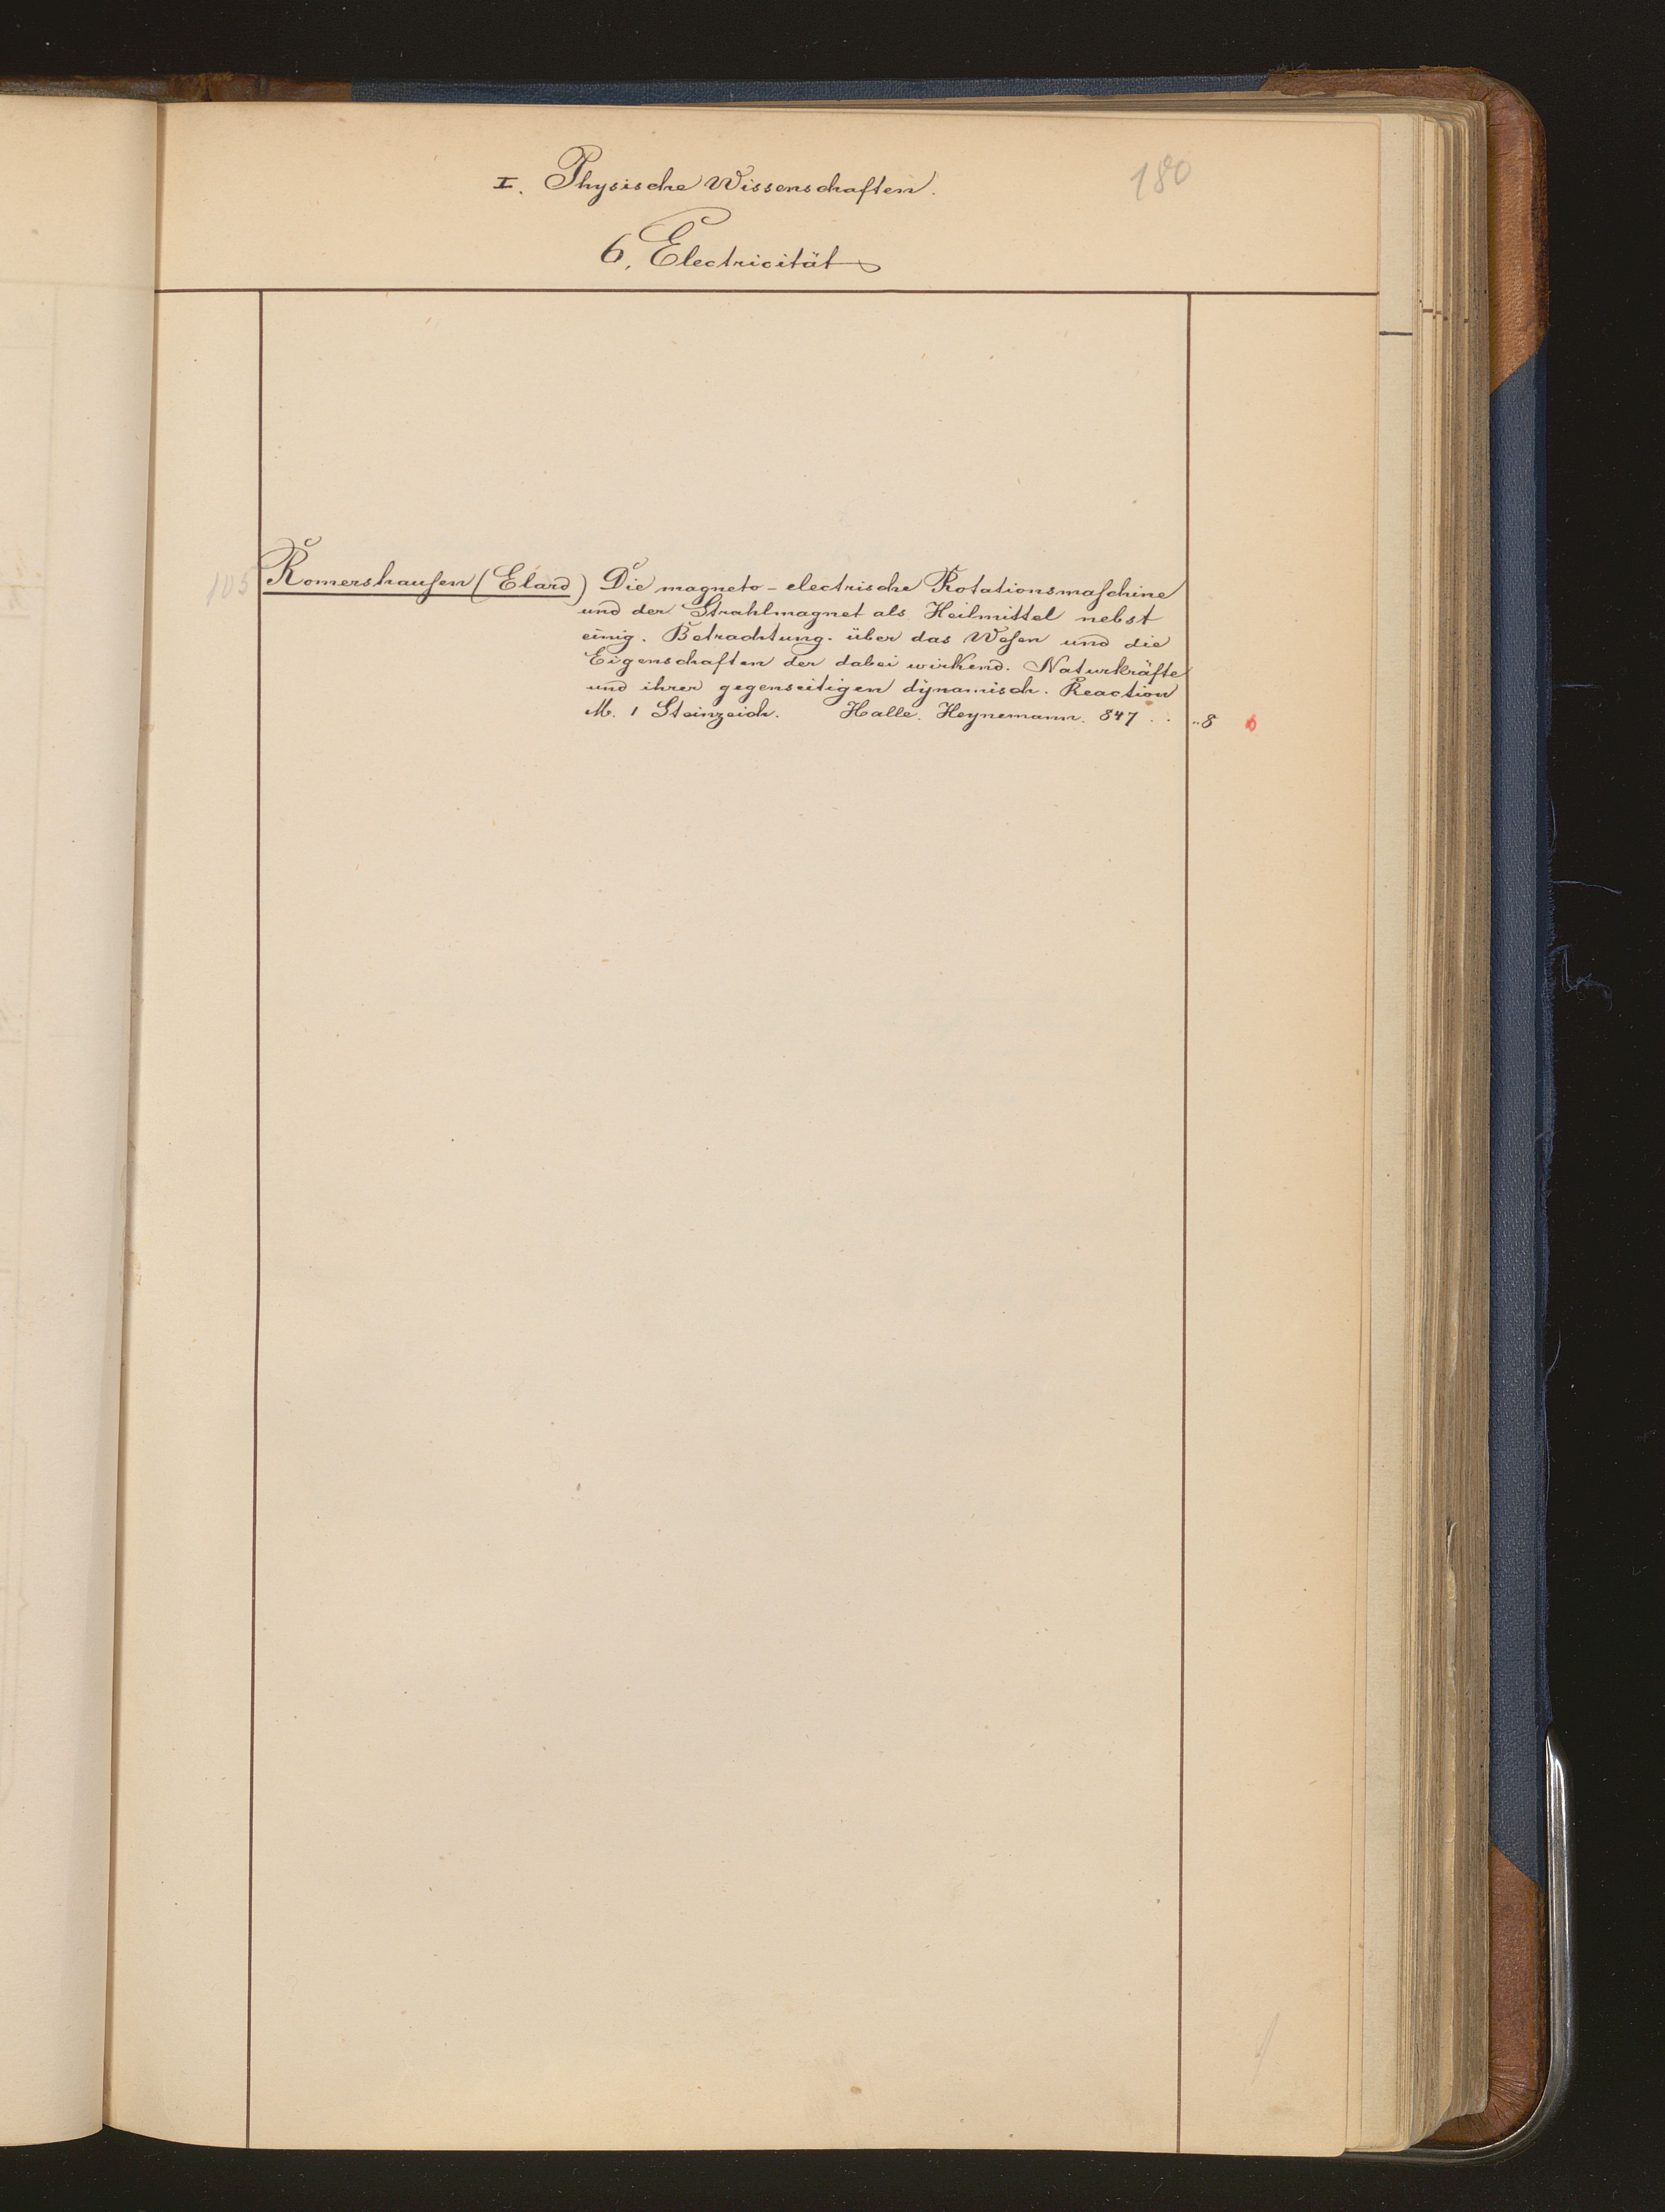 180
I. Physische Wissenschaften.
6. Electricität
105 Romershausen (Elard) Die magneto-electrische Rotationsmaschine
und der Strahlmagnet als Heilmittel nebst
einig. Betrachtung. über das Wesen und die
Eigenschaften der dabei wirkend. Naturkräfte
und ihrer gegenseitigen dynamisch. Reaction
M. 1 Steinzeich. Halle. Heynemann. 847 . . „8